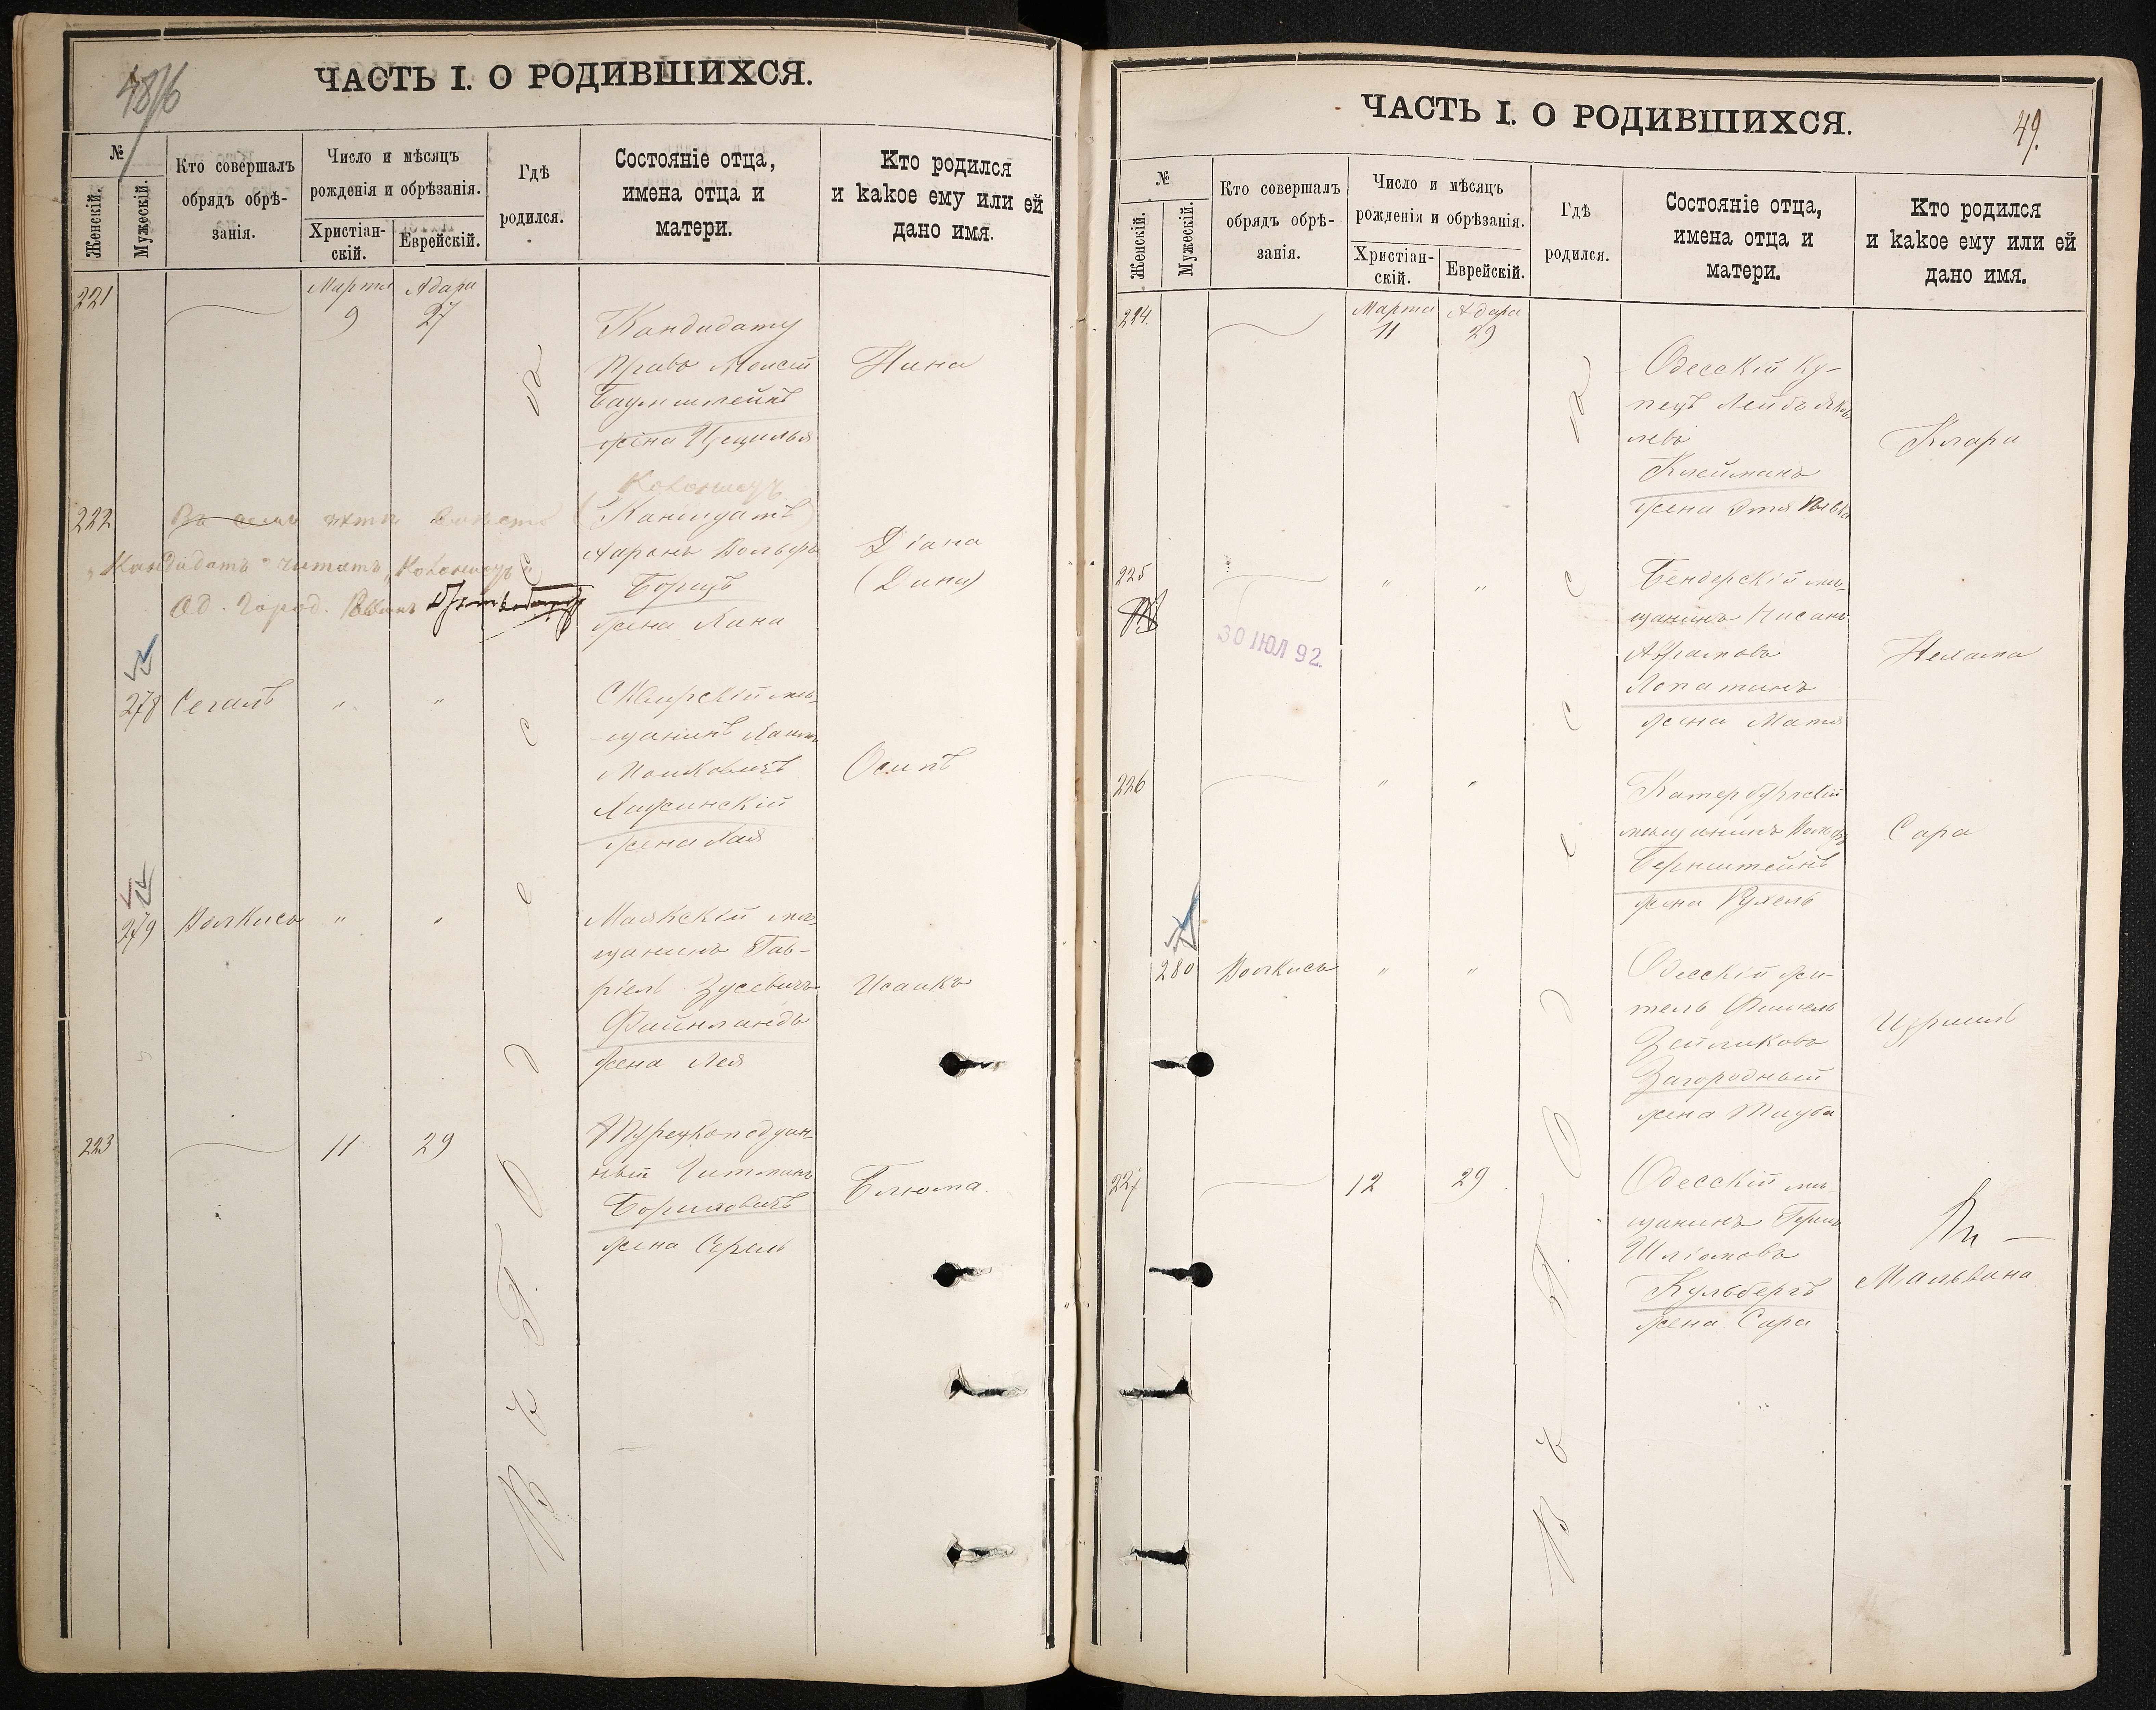 ЧАСТЬ I. О РОДИВШИХСЯ.
№
Женскій.
Мужескій.
Кто совершалъ
обрядъ обрѣ-
занія.
Число и мѣсяцъ
рожденія и обрѣзанія.
Христіан-
скій.
Еврейскій.
Гдѣ
родился.
Состояніе отца,
имена отца и
матери.
Кто родился
и какое ему или ей
дано имя.
221
Марта
9
Адара
27
Кандидату
Правъ Моисей
Баумштейнъ
жена Цецилья
Нина
222
Въ семъ актѣ вмѣсто
"Кандидатъ" читать
Од. Город. Раввинъ
(Кандидатъ)
Ааронъ Вольфъ
Борцъ
жена Хана
Діана
(Дина)
278
Сегалъ
"
"
Сквирскій мѣ-
щанинъ Хаимъ
Мошковичъ
Хажинскій
жена Хая
Осипъ
279
Волкисъ
"
"
Маякскій мѣ-
щанинъ Гав-
ріель Зусевичъ
Файнландъ
жена Лея
Исаакъ
223
11
29
Турецкоподдан-
ный Гитманъ
Боришовичъ
жена Серль
Блюма
Въ г. Одесса
ЧАСТЬ I. О РОДИВШИХСЯ.
49.
№
Женскій.
Мужескій.
Кто совершалъ
обрядъ обрѣ-
занія.
Число и мѣсяцъ
рожденія и обрѣзанія.
Христіан-
скій.
Еврейскій.
Гдѣ
родился.
Состояніе отца,
имена отца и
матери.
Кто родился
и какое ему или ей
дано имя.
224.
Марта
11
Адара
29
Одесскій Ку-
пецъ Лейбъ
Клейманъ
жена Этя Ривка
Клара
225
30 ІЮЛ 92.
"
"
Бендерскій мѣ-
щанинъ Нисанъ
Абрамовъ
Лопатинъ
жена Матя
Нехама
226
"
"
Катербургскій
мѣщанинъ Вольфъ
Бернштейнъ
жена Рухель
Сара
280
Волкисъ
"
"
Одесскій жи-
тель Фишель
Зейликовъ
Загородный
жена Тауба
Израиль
227
12
29
Одесскій мѣ-
щанинъ Герш
Шліомовъ
Кульбергъ
жена Сара
Мальвина
Въ г. Одесса